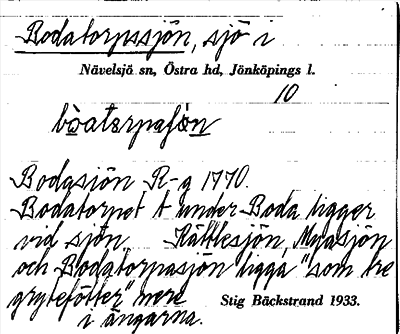 Bodatorpssjön, sjö i
Nävelsjö sn, Östra hd, Jönköpings l.
10
bòatɛrpaʃön
Bodasjön R-g 1770.
Bodatorpet t under Boda ligger
vid sjön. Kättlesjön, Myasjön
och Bodatorpasjön ligga "som tre
grytefötter" nere
i ängarna.
Stig Bäckstrand 1933.